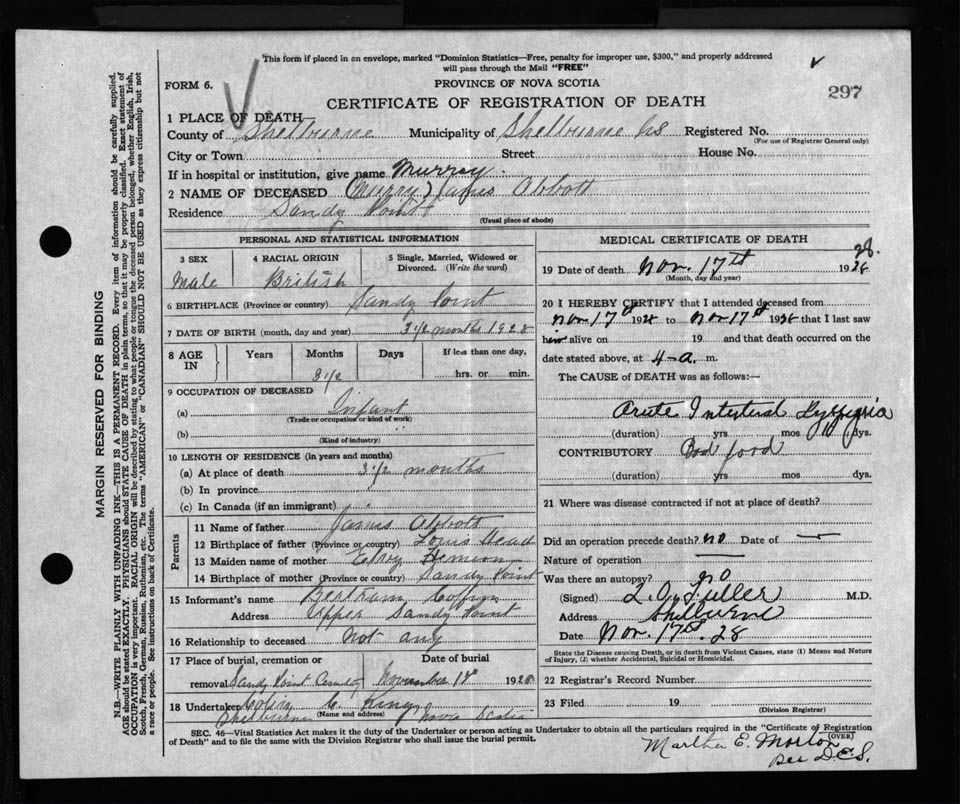 This form if placed in an envelope, marked "Dominion Statistics—Free, penalty for improper use, $300," and properly addressed
will pass through the Mail "FREE"
FORM 6.
PROVINCE OF NOVA SCOTIA
297
CERTIFICATE OF REGISTRATION OF DEATH
1 PLACE OF DEATH
County of Shelburne Municipality of Shelburne NS Registered No.
(For use of Registrar General only)
City or Town Street House No.
If in hospital or institution, give name Murray
2 NAME OF DECEASED (Murry) James Abbott
Residence Sandy Point
(Usual place of abode)
PERSONAL AND STATISTICAL INFORMATION
3 SEX 4 RACIAL ORIGIN 5 Single, Married, Widowed or
Divorced. (Write the word)
Male British
6 BIRTHPLACE (Province or country) Sandy Point
7 DATE OF BIRTH (month, day and year) 3 1/2 months 1928
8 AGE IN Years Months Days If less than one day,
3 1/2 hrs. or min.
9 OCCUPATION OF DECEASED
(a) Infant
(Trade or occupation or kind of work)
(b)
(Kind of industry)
10 LENGTH OF RESIDENCE (in years and months)
(a) At place of death 3 1/2 months
(b) In province
(c) In Canada (if an immigrant)
Parents
11 Name of father James Abbott
12 Birthplace of father (Province or country) Louis Head
13 Maiden name of mother
14 Birthplace of mother (Province or country) Sandy Point
15 Informant's name Bertram Coffin
Address Upper Sandy Point
16 Relationship to deceased Not any
17 Place of burial, cremation or Date of burial
removal Sandy Point Cemetery November 18th 1928
18 Undertaker Colin C. King
(Name and address)
Shelburne Nova Scotia
MEDICAL CERTIFICATE OF DEATH
19 Date of death Nov. 17th 1928.
(Month, day and year)
20 I HEREBY CERTIFY that I attended deceased from
Nov 17th 1928 to Nov 17th 1928 that I last saw
him alive on 19 and that death occurred on the
date stated above, at 4 a. m.
The CAUSE of DEATH was as follows:—
Acute Intestinal
(duration) yrs. mos 10 dys.
CONTRIBUTORY Bad food
(duration) yrs. mos. dys.
21 Where was disease contracted if not at place of death?
Did an operation precede death? no Date of —
Nature of operation —
Was there an autopsy? no
(Signed) Fuller M.D.
Address Shelburne
Date Nov. 17th. 28
State the Disease causing Death, or in death from Violent Causes, state (1) Means and Nature
of Injury, (2) whether Accidental, Suicidal or Homicidal.
22 Registrar's Record Number
23 Filed 19
(Division Registrar)
SEC. 46—Vital Statistics Act makes it the duty of the Undertaker or person acting as Undertaker to obtain all the particulars required in the "Certificate of Registration
of Death" and to file the same with the Division Registrar who shall issue the burial permit.
(OVER)
Martha E. Morton
Per D.E.S.
MARGIN RESERVED FOR BINDING
N.B.—WRITE PLAINLY WITH UNFADING INK—THIS IS A PERMANENT RECORD. Every item of information should be carefully supplied.
AGE should be stated EXACTLY. PHYSICIANS should STATE CAUSE OF DEATH in plain terms, so that it may be properly classified. Exact statement of
OCCUPATION is very important. RACIAL ORIGIN will be described by stating to what people or tongue the deceased person belonged, whether English, Irish,
Scotch, French, German, Russian, Ruthenian, etc. The terms "AMERICAN" or "CANADIAN" SHOULD NOT BE USED as they express citizenship but not
a race or people. See instructions on back of Certificate.